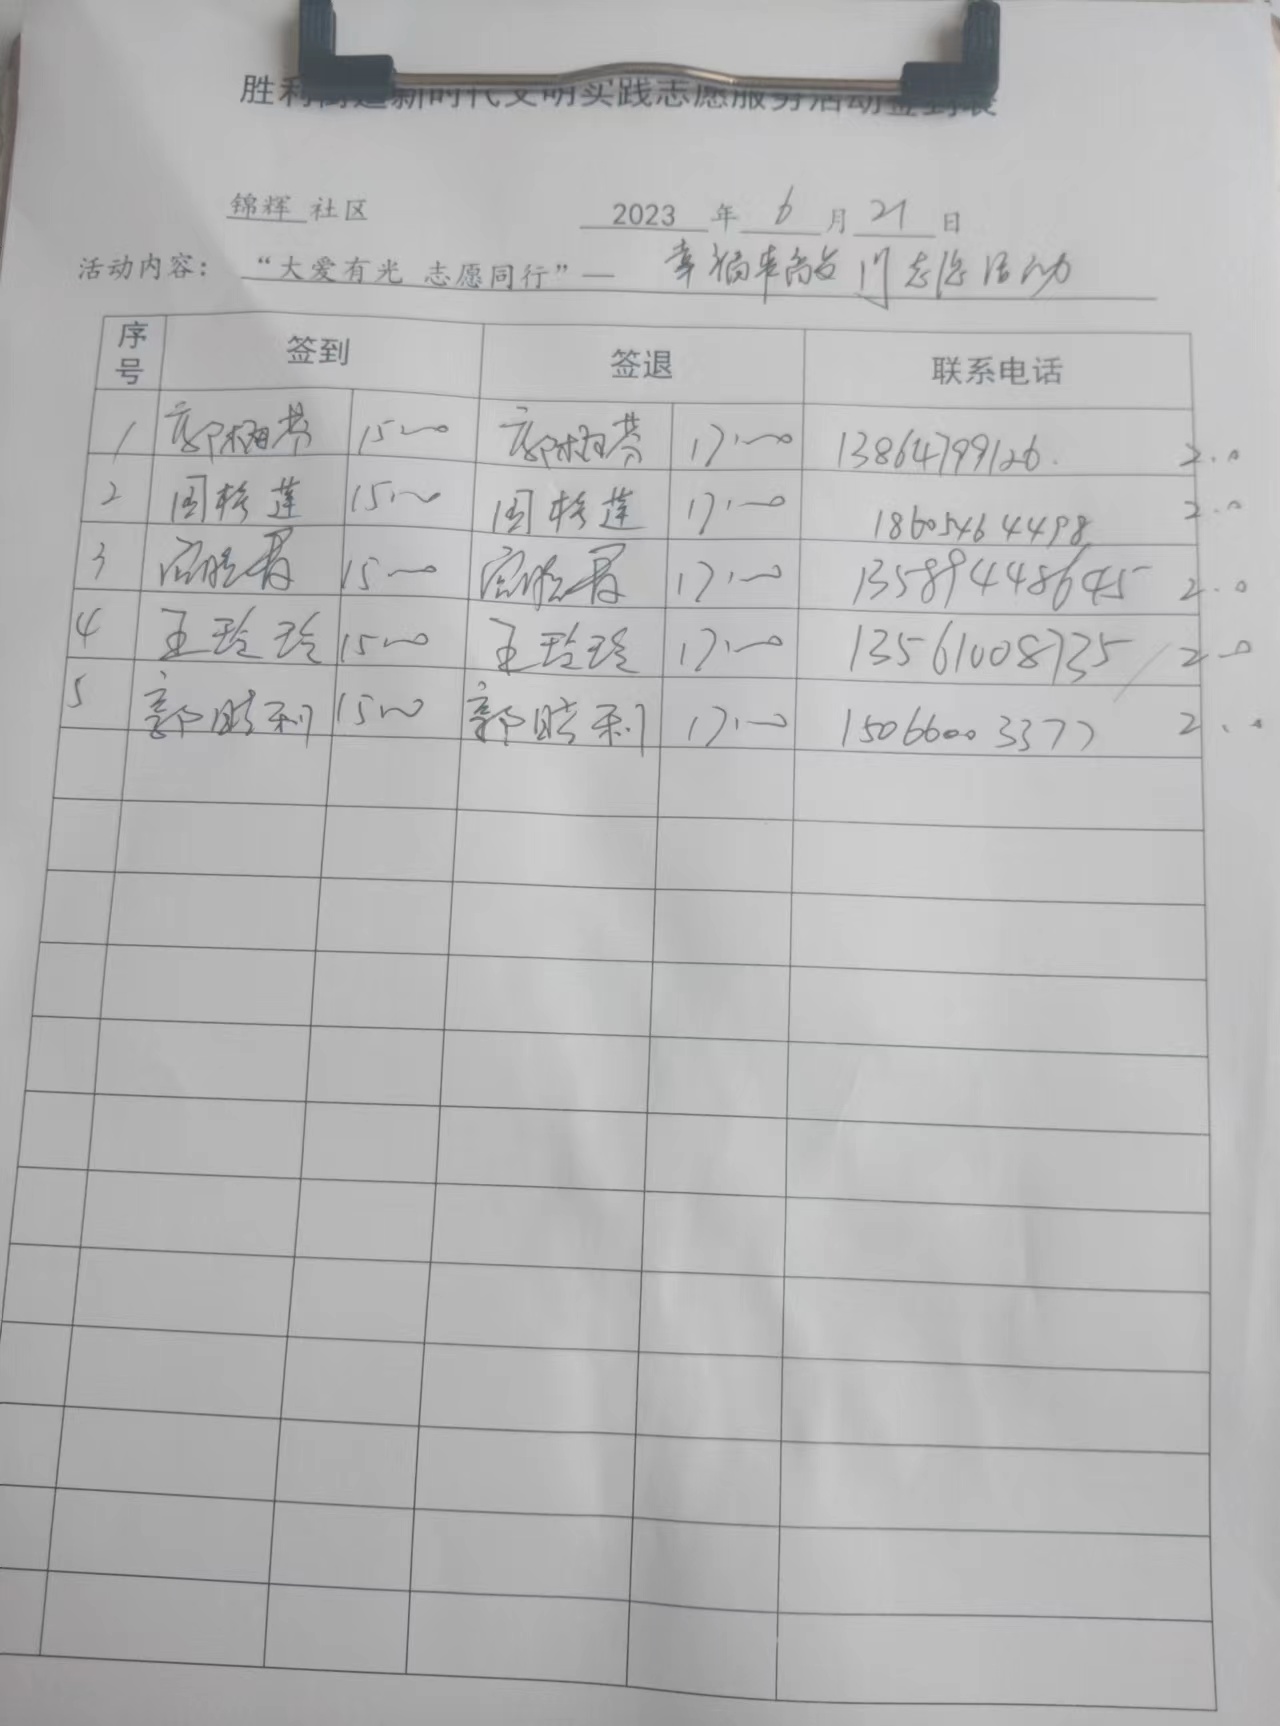 胜利街道新时代文明实践志愿服务活动签到表
锦辉 社区 2023 年 6 月 21 日
活动内容： “大爱有光 志愿同行”— 幸福来敲 门 志愿活动
序号 签到 签退 联系电话
1 郭梅芳 15:00 郭梅芳 17:00 13864799126. 2.0
2 周 莲 15:00 周 莲 17:00 18605464498 2.0
3 15:00 17:00 13589448645 2.0
4 王玲玲 15:00 王玲玲 17:00 13561008735 2.0
5 郭晓利 15:00 郭晓利 17:00 15066003377 2.0